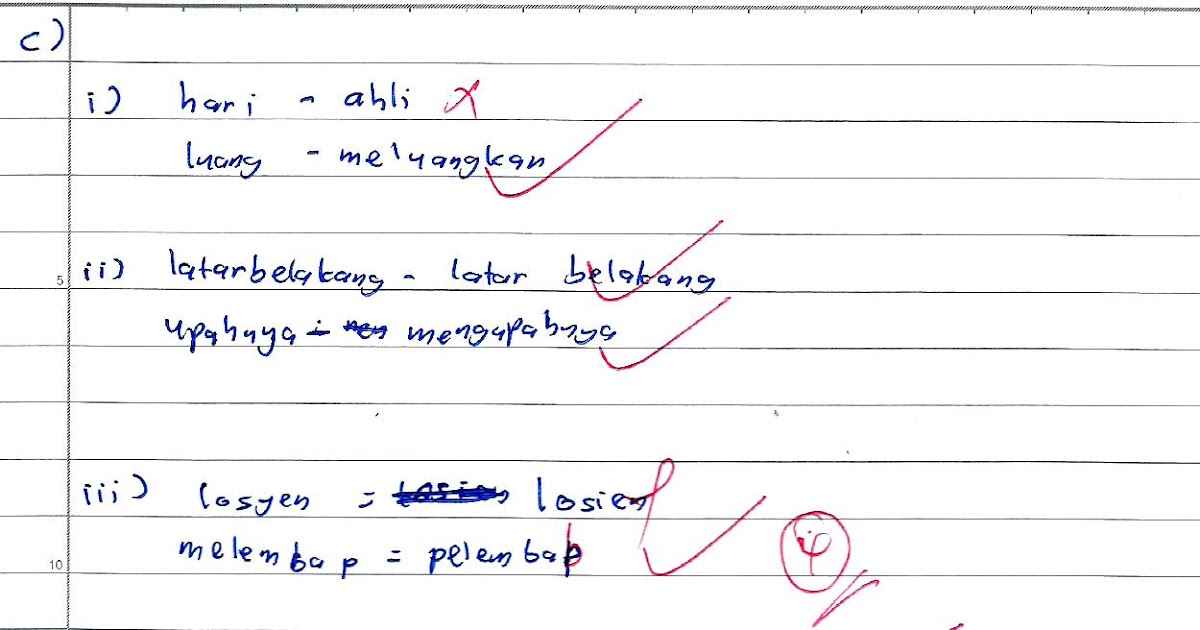 c)
i) hari - ahli
luang - meluangkan
5 ii) latarbelakang - latar belakang
upahnya - mengupahnya
iii) losyen = losien
10 melembap = pelembab
4